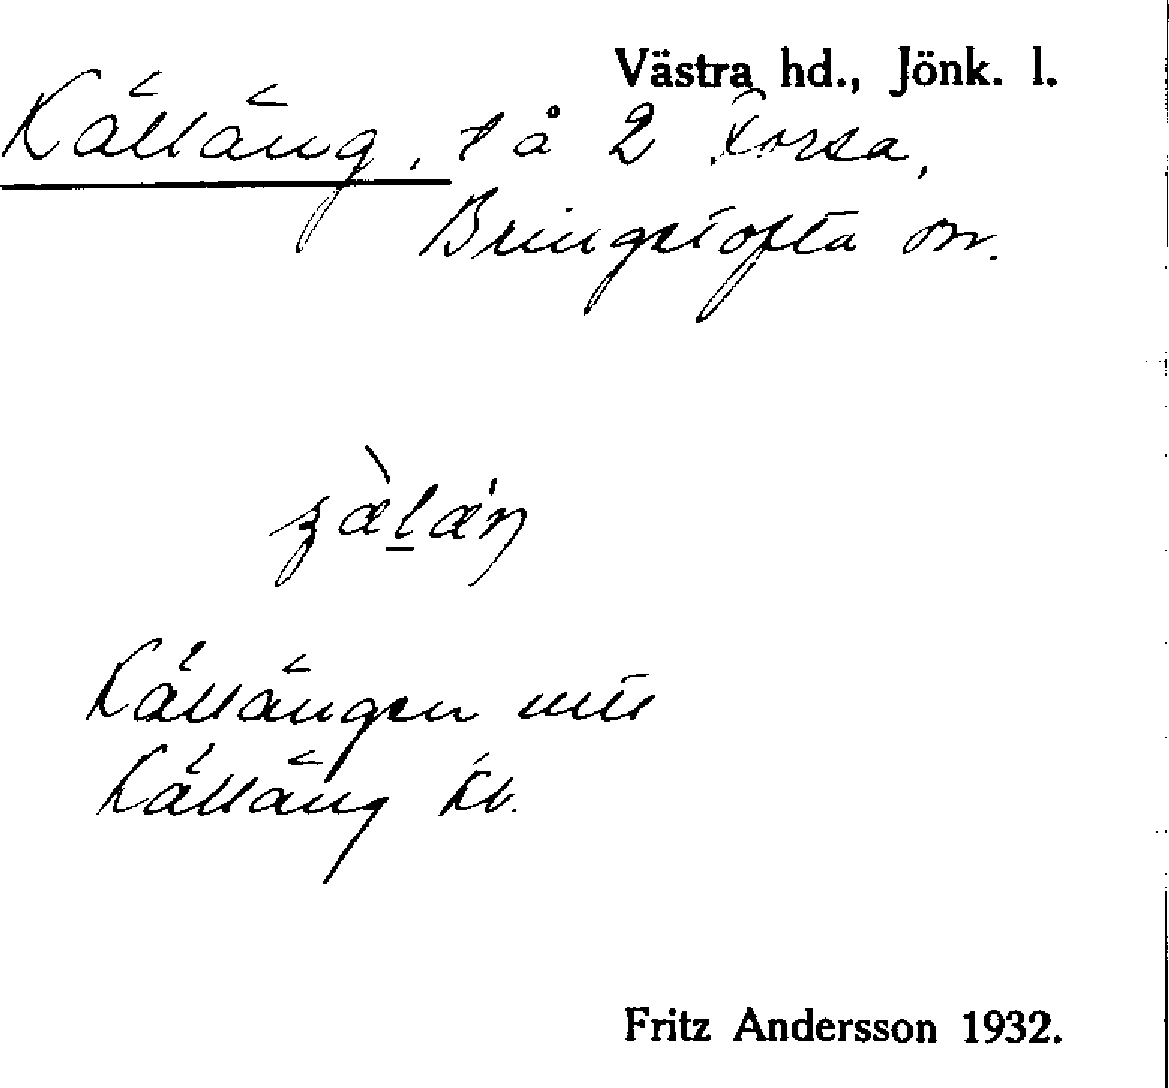 Västra hd., Jönk. l.
Källäng, t å 2 Korsa,
Bringetofta sn.
Källängen
Källäng Kb.
Fritz Andersson 1932.